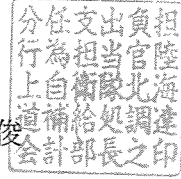 分任支出負担
行為担当官陸
上自衛隊北海
道補給処調達
会計部長之印
俊